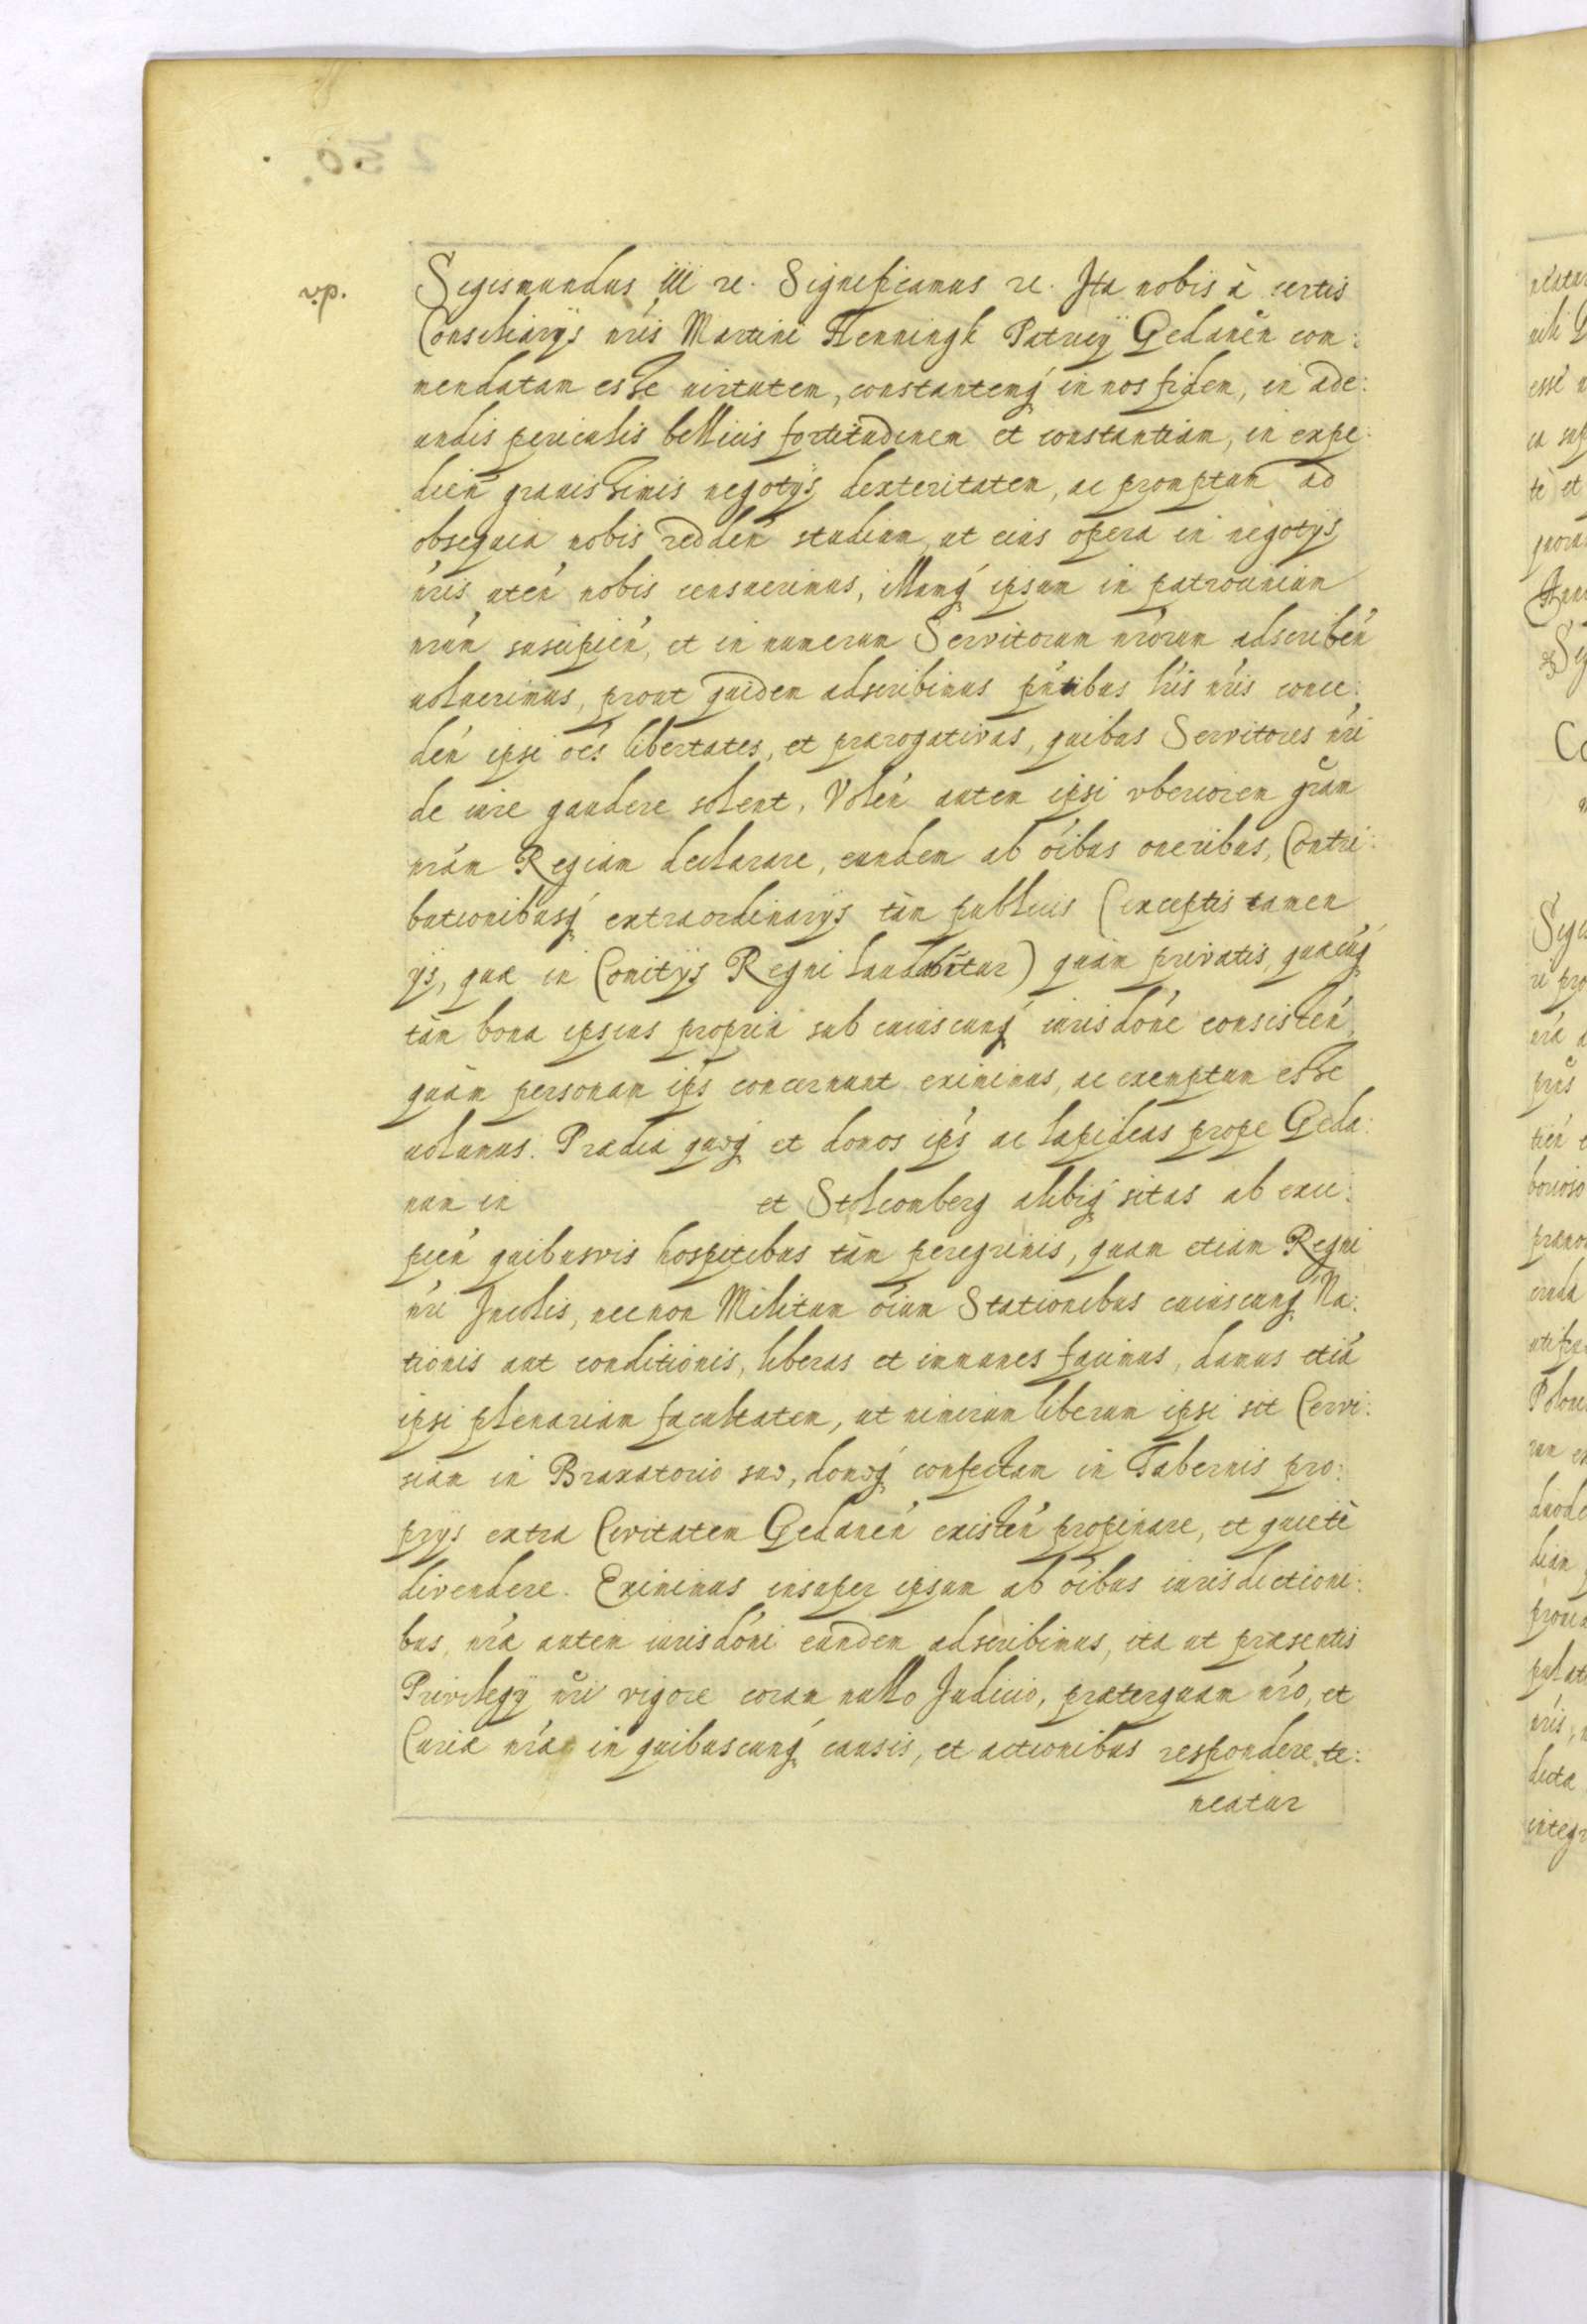 v.p.
Sigismundus iii rc. Significamus rc. Ita nobis à certis
Consiliarijs nr̃is Martini Henningk Patricij Gedanen̄ com:
mendatam esse uirtutem, constantemq́ in nos fidem, in ade:
undis periculis bellicis fortitudinem et constantiam, in expe:
dien̄ grauissimis negotijs dexteritatem, ac promptum ad
obsequia nobis redden̄ studium, ut eius opera in negotijs
nr̃is uten̄ nobis censuerimus, illumq́ ipsum in patrocinium
nr̃um suscipien̄, et in numerum Servitorum nr̃orum adscriben̄
uoluerimus, prout quidem adscribimus pñtibus lr̃is nr̃is conce:
den̄ ipsi oẽs libertates, et prærogativas, quibus Servitores nr̃i
de iure gaudere solent. Volen̄ autem ipsi vberiorem gr̃am
nr̃am Regiam declarare, eundem ab õibus oneribus, Contri:
butionibusq́ extraordinarijs tàm publicis (exceptis tamen
ijs, quæ in Comitijs Regni laudabitur) quàm privatis, quæcuq́
tàm bona ipsius propria sub cuiuscunq́ iurisdõne consisten̄,
quàm personam ips̄ concernunt eximimus, ac exemptum esse
uolumus. Prædia quoq́ et domos ips̄ ac lapideas prope Geda:
num in et Stolcomberg alibiq́ sitas ab exci:
pien̄ quibusvis hospitibus tàm peregrinis, quam etiam Regni
nr̃i Incolis, necnon Militum õium Stationibus cuiuscunq́ Na:
tionis aut conditionis, liberas et immunes facimus, damus etiā
ipsi plenariam facultatem, ut nimirum liberum ipsi sit Cervi:
siam in Braxatorio suo, domoq́ confectam in Tabernis pro:
prijs extra Civitatem Gedanen̄ existen̄ propinare, et quietè
divendere. Eximimus insuper ipsum ab õibus iurisdictioni:
bus, nr̃a autem iurisdõni eundem adscribimus, ita ut præsentis
Privilegij nr̃i vigore coram nullo Judicio, præterquam nr̃o, et
Curiæ nr̃æ in quibuscunq́ causis, et actionibus respondere te:
neatur